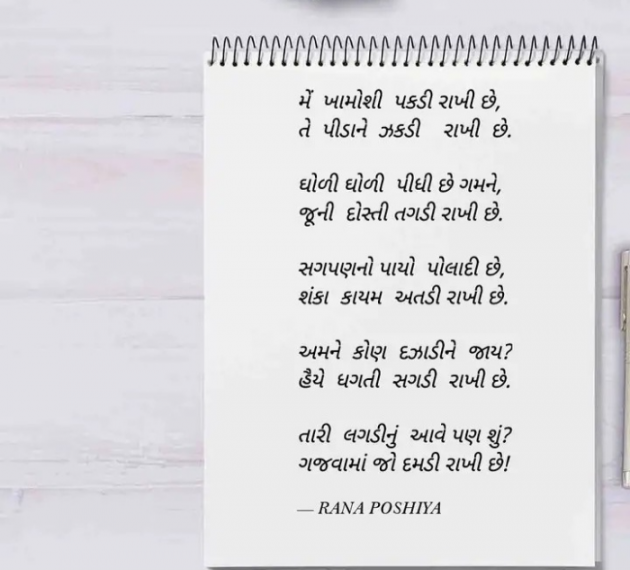 મેં ખામોશી પકડી રાખી છે,
તે પીડાને ઝકડી રાખી છે.
ઘોળી ઘોળી પીધી છે ગમને,
જૂની દોસ્તી તગડી રાખી છે.
સગપણનો પાયો પોલાદી છે,
શંકા કાયમ અતડી રાખી છે.
અમને કોણ દઝાડીને જાય?
હૈયે ધગતી સગડી રાખી છે.
તારી લગડીનું આવે પણ શું?
ગજવામાં જો દમડી રાખી છે!
— RANA POSHIYA